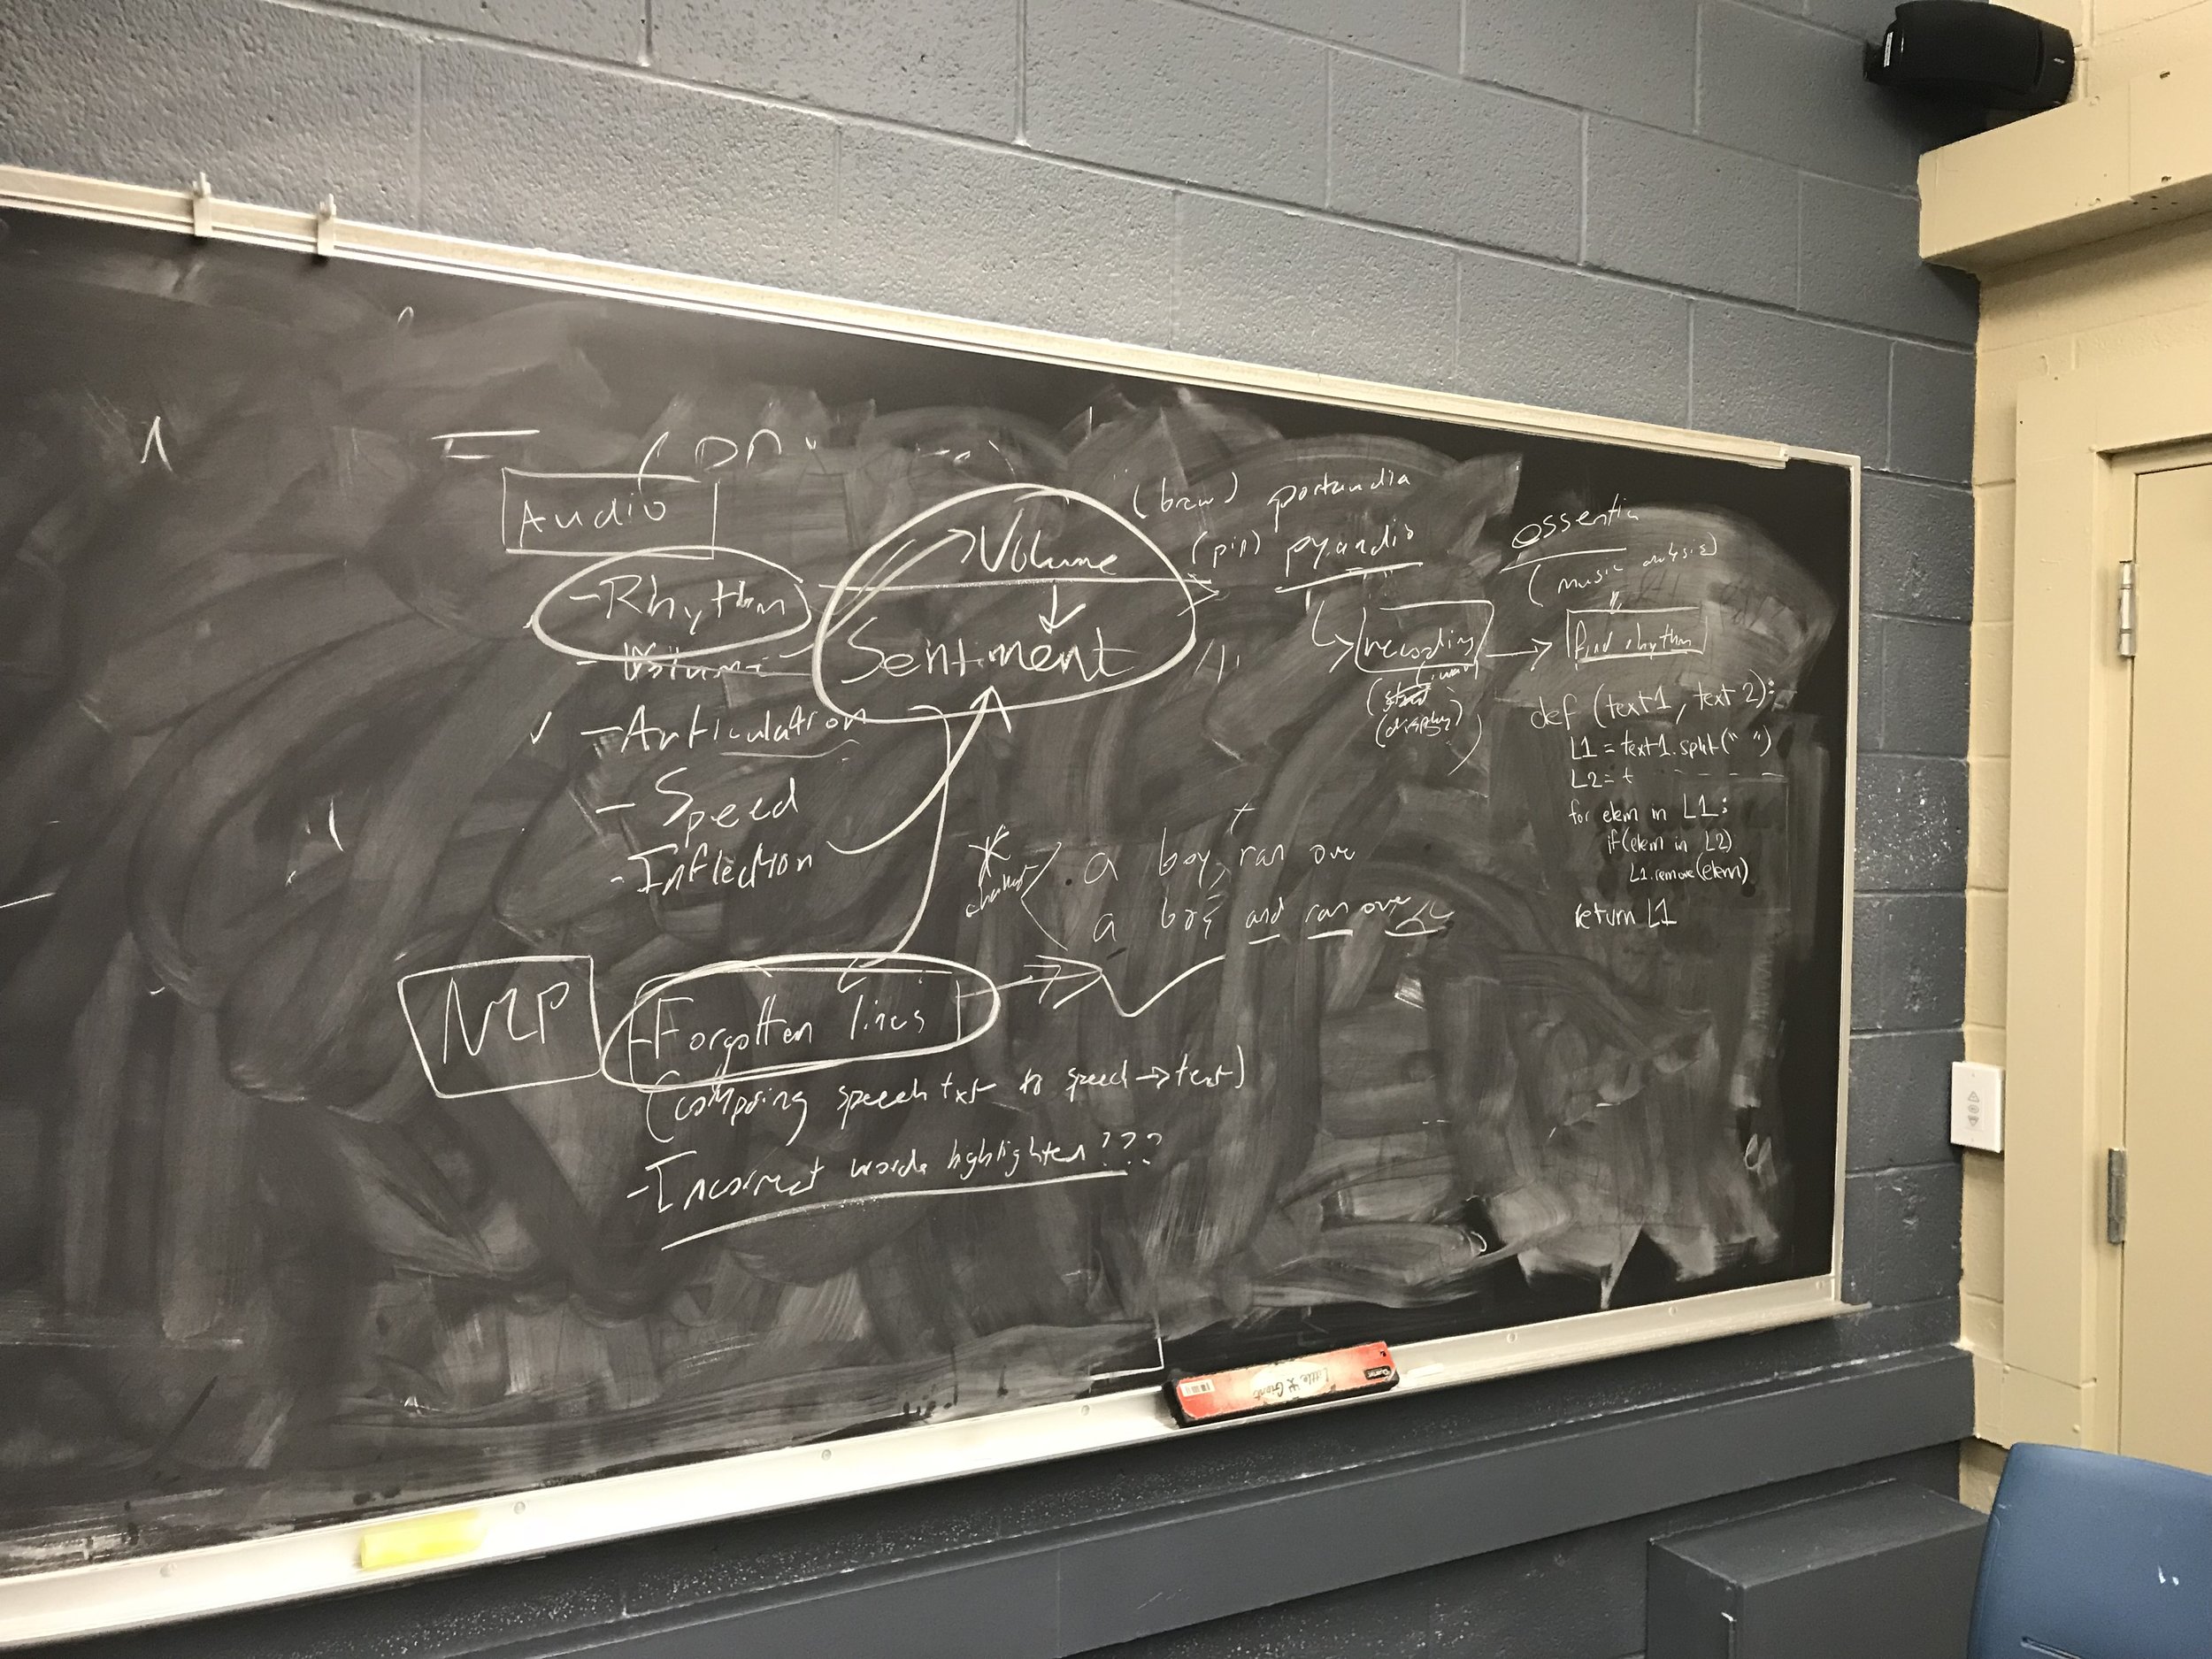 Audio
- Rhythm
- Volume
✓ - Articulation
- Speed
- Inflection
Volume
Sentiment
(brew) portaudio
(pip) pyaudio
recording
(display)
essentia
(music analysis)
find rhythm
def (text1, text2):
L1 = text1.split(" ")
L2 = t - - - -
for elem in L1:
if (elem in L2)
L1.remove(elem)
return L1
a boy ran over
a boy and ran over
NLP
- Forgotten lines
(comparing speech txt to speech → text)
- Incorrect words highlighted???
Little Giant